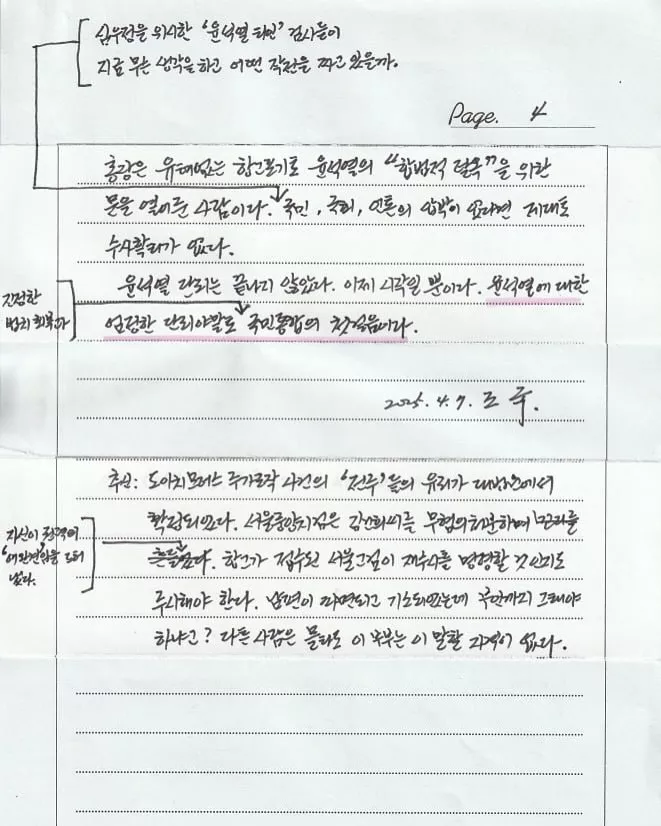 심우정을 위시한 '윤석열 라인' 검사들이
지금 무슨 생각을 하고 어떤 작전을 짜고 있을까.
Page. 4
총장은 유례없는 항고포기로 윤석열의 "합법적 탈옥"을 위한
문을 열어준 사람이다. 국민, 국회, 언론의 압박이 없다면 제대로
수사할리가 없다.
윤석열 단죄는 끝나지 않았다. 이제 시작일 뿐이다. 윤석열에 대한
진정한
법치 회복과
엄정한 단죄야말로 국민통합의 첫걸음이다.
2025. 4. 7. 조 국.
추신: 도이치모터스 주가조작 사건의 '전주'들의 유죄가 대법원에서
확정되었다. 서울중앙지검은 김건희씨를 무혐의처분하며
자신이
항고가 접수된 서울고검이 재수사를 명령할 것인지도
주시해야 한다. 남편이 파면되고 기소되었는데 그래야
하냐고? 다른 사람은 몰라도 이 부부는 이 말할 자격이 없다.